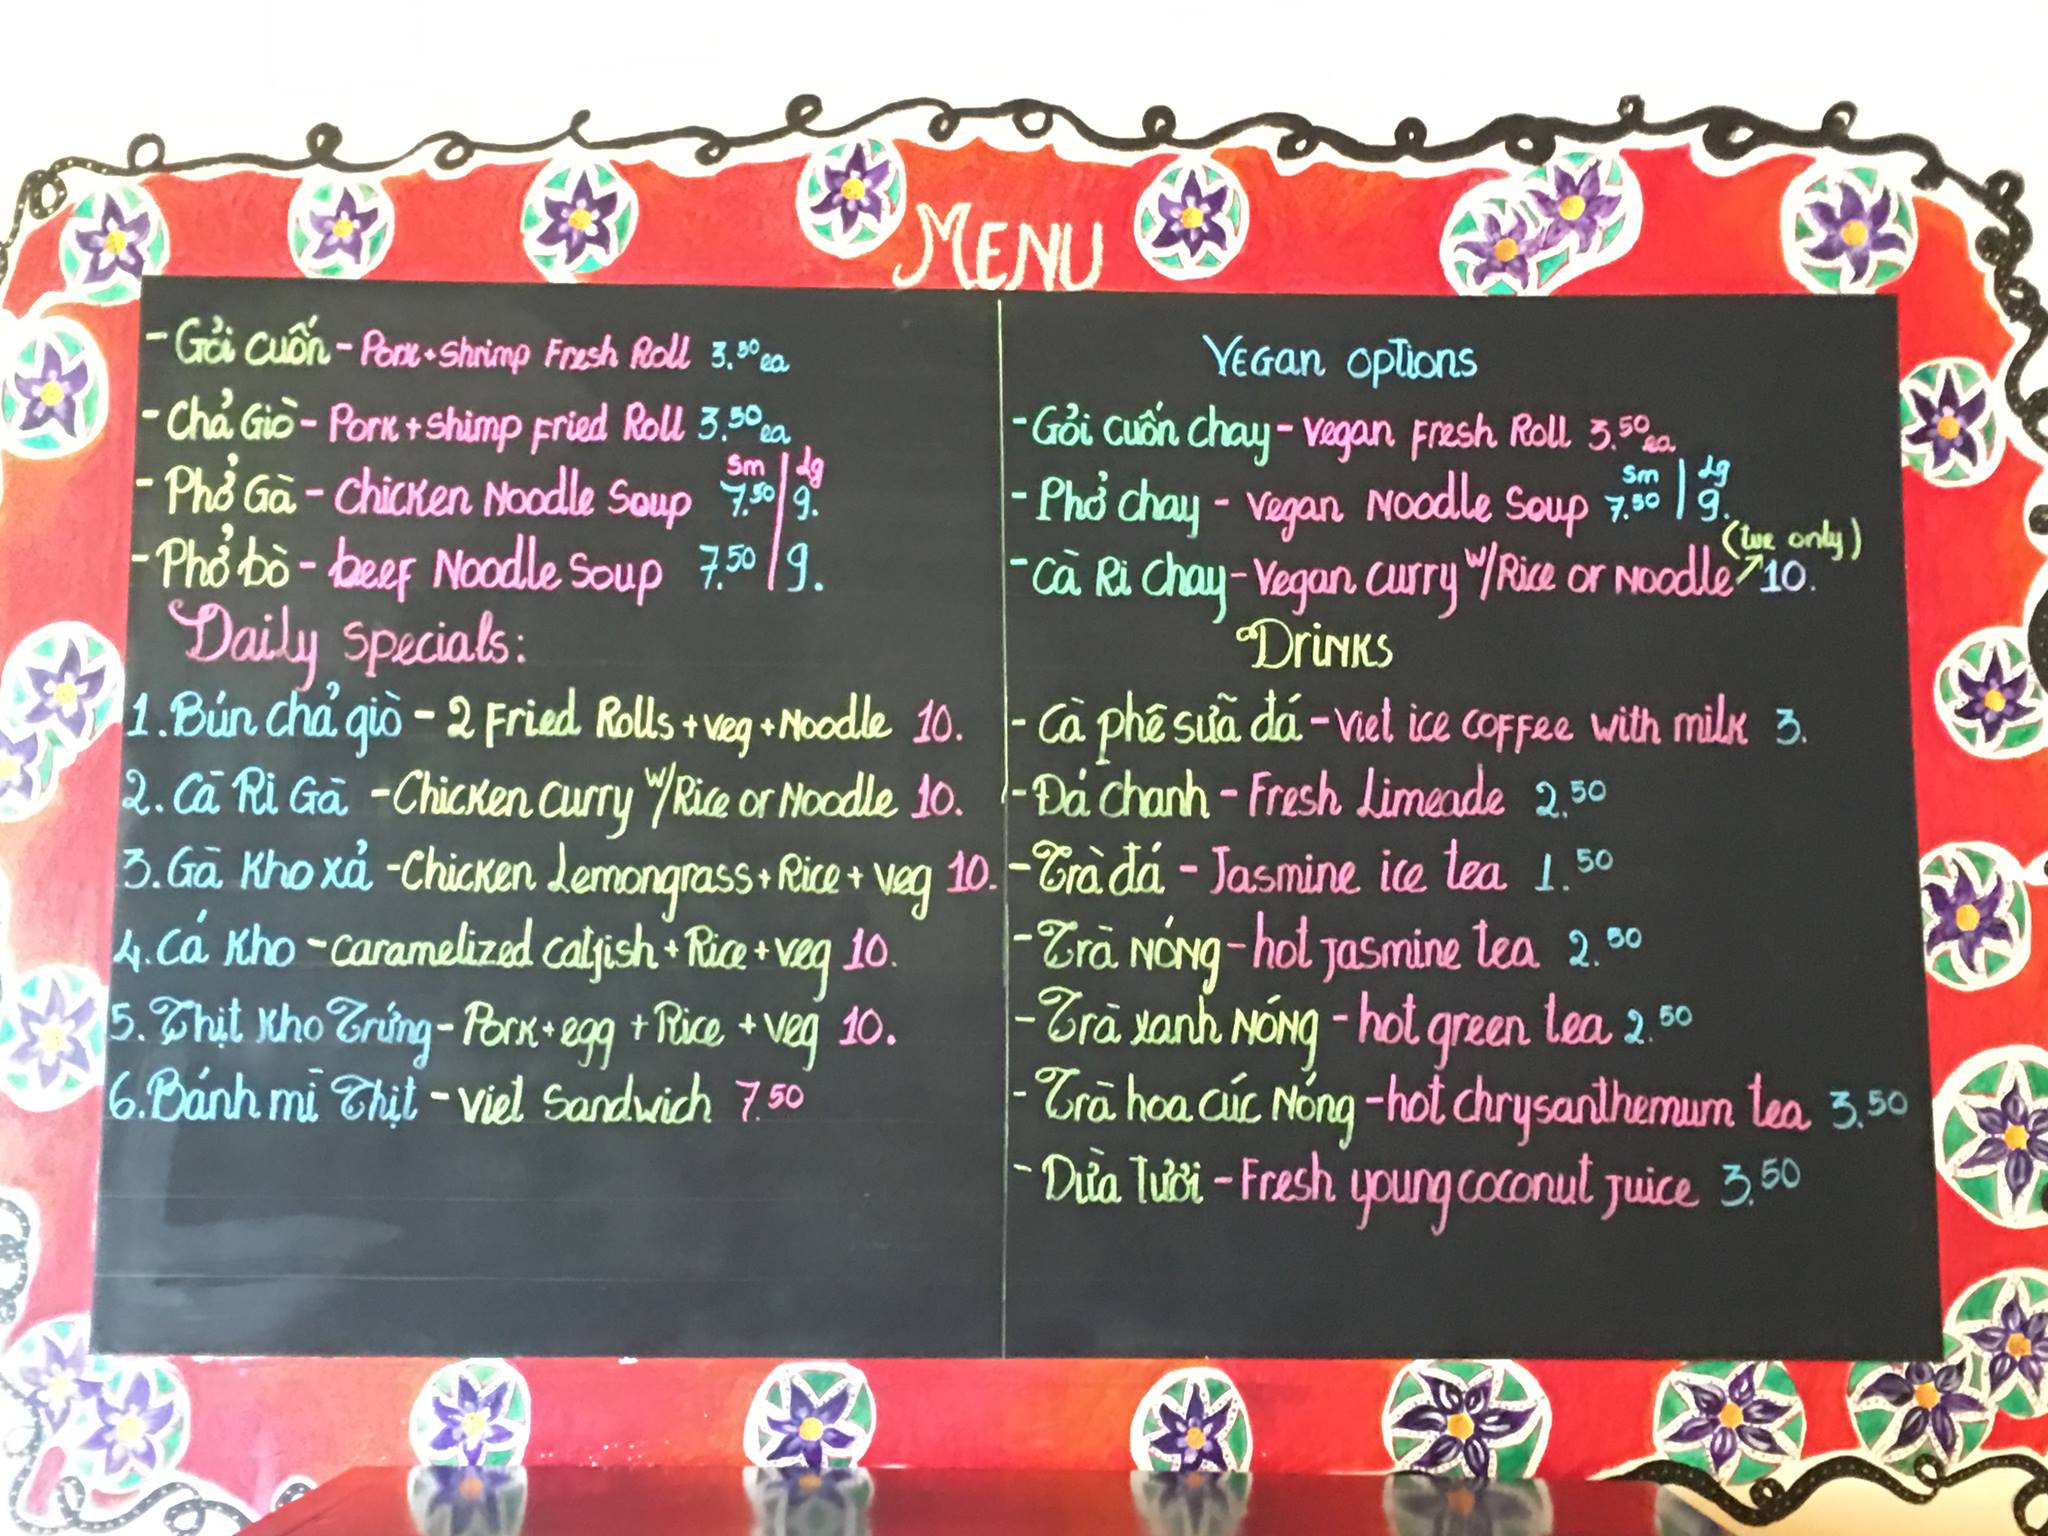 MENU
- Gỏi cuốn - Pork + Shrimp Fresh Roll 3.50 ea
- Chả Giò - Pork + Shimp Fried Roll 3.50 ea
sm | lg
- Phở Gà - Chicken Noodle Soup 7.50 | 9.
- Phở bò - beef Noodle Soup 7.50 | 9.
Daily Specials:
1. Bún chả giò - 2 Fried Rolls + veg + Noodle 10.
2. Cà Ri Gà - Chicken curry w/Rice or Noodle 10.
3. Gà Kho xả - Chicken Lemongrass + Rice + veg 10.
4. Cá Kho - caramelized catfish + Rice + veg 10.
5. Thịt Kho Trứng - Pork + egg + Rice + veg 10.
6. Bánh mì Thịt - Viet Sandwich 7.50
Vegan options
- Gỏi cuốn chay - Vegan Fresh Roll 3.50 ea
sm | lg
- Phở chay - Vegan Noodle Soup 7.50 | 9.
(tue only)
- Cà Ri Chay - Vegan curry w/Rice or Noodle 10.
Drinks
- Cà phê sữa đá - Viet ice coffee with milk 3.
- Đá chanh - Fresh Limeade 2.50
- Trà đá - Jasmine ice tea 1.50
- Trà NÓNG - hot jasmine tea 2.50
- Trà xanh NÓNG - hot green tea 2.50
- Trà hoa cúc Nóng - hot chrysanthemum tea 3.50
- Dừa Tươi - Fresh young coconut juice 3.50